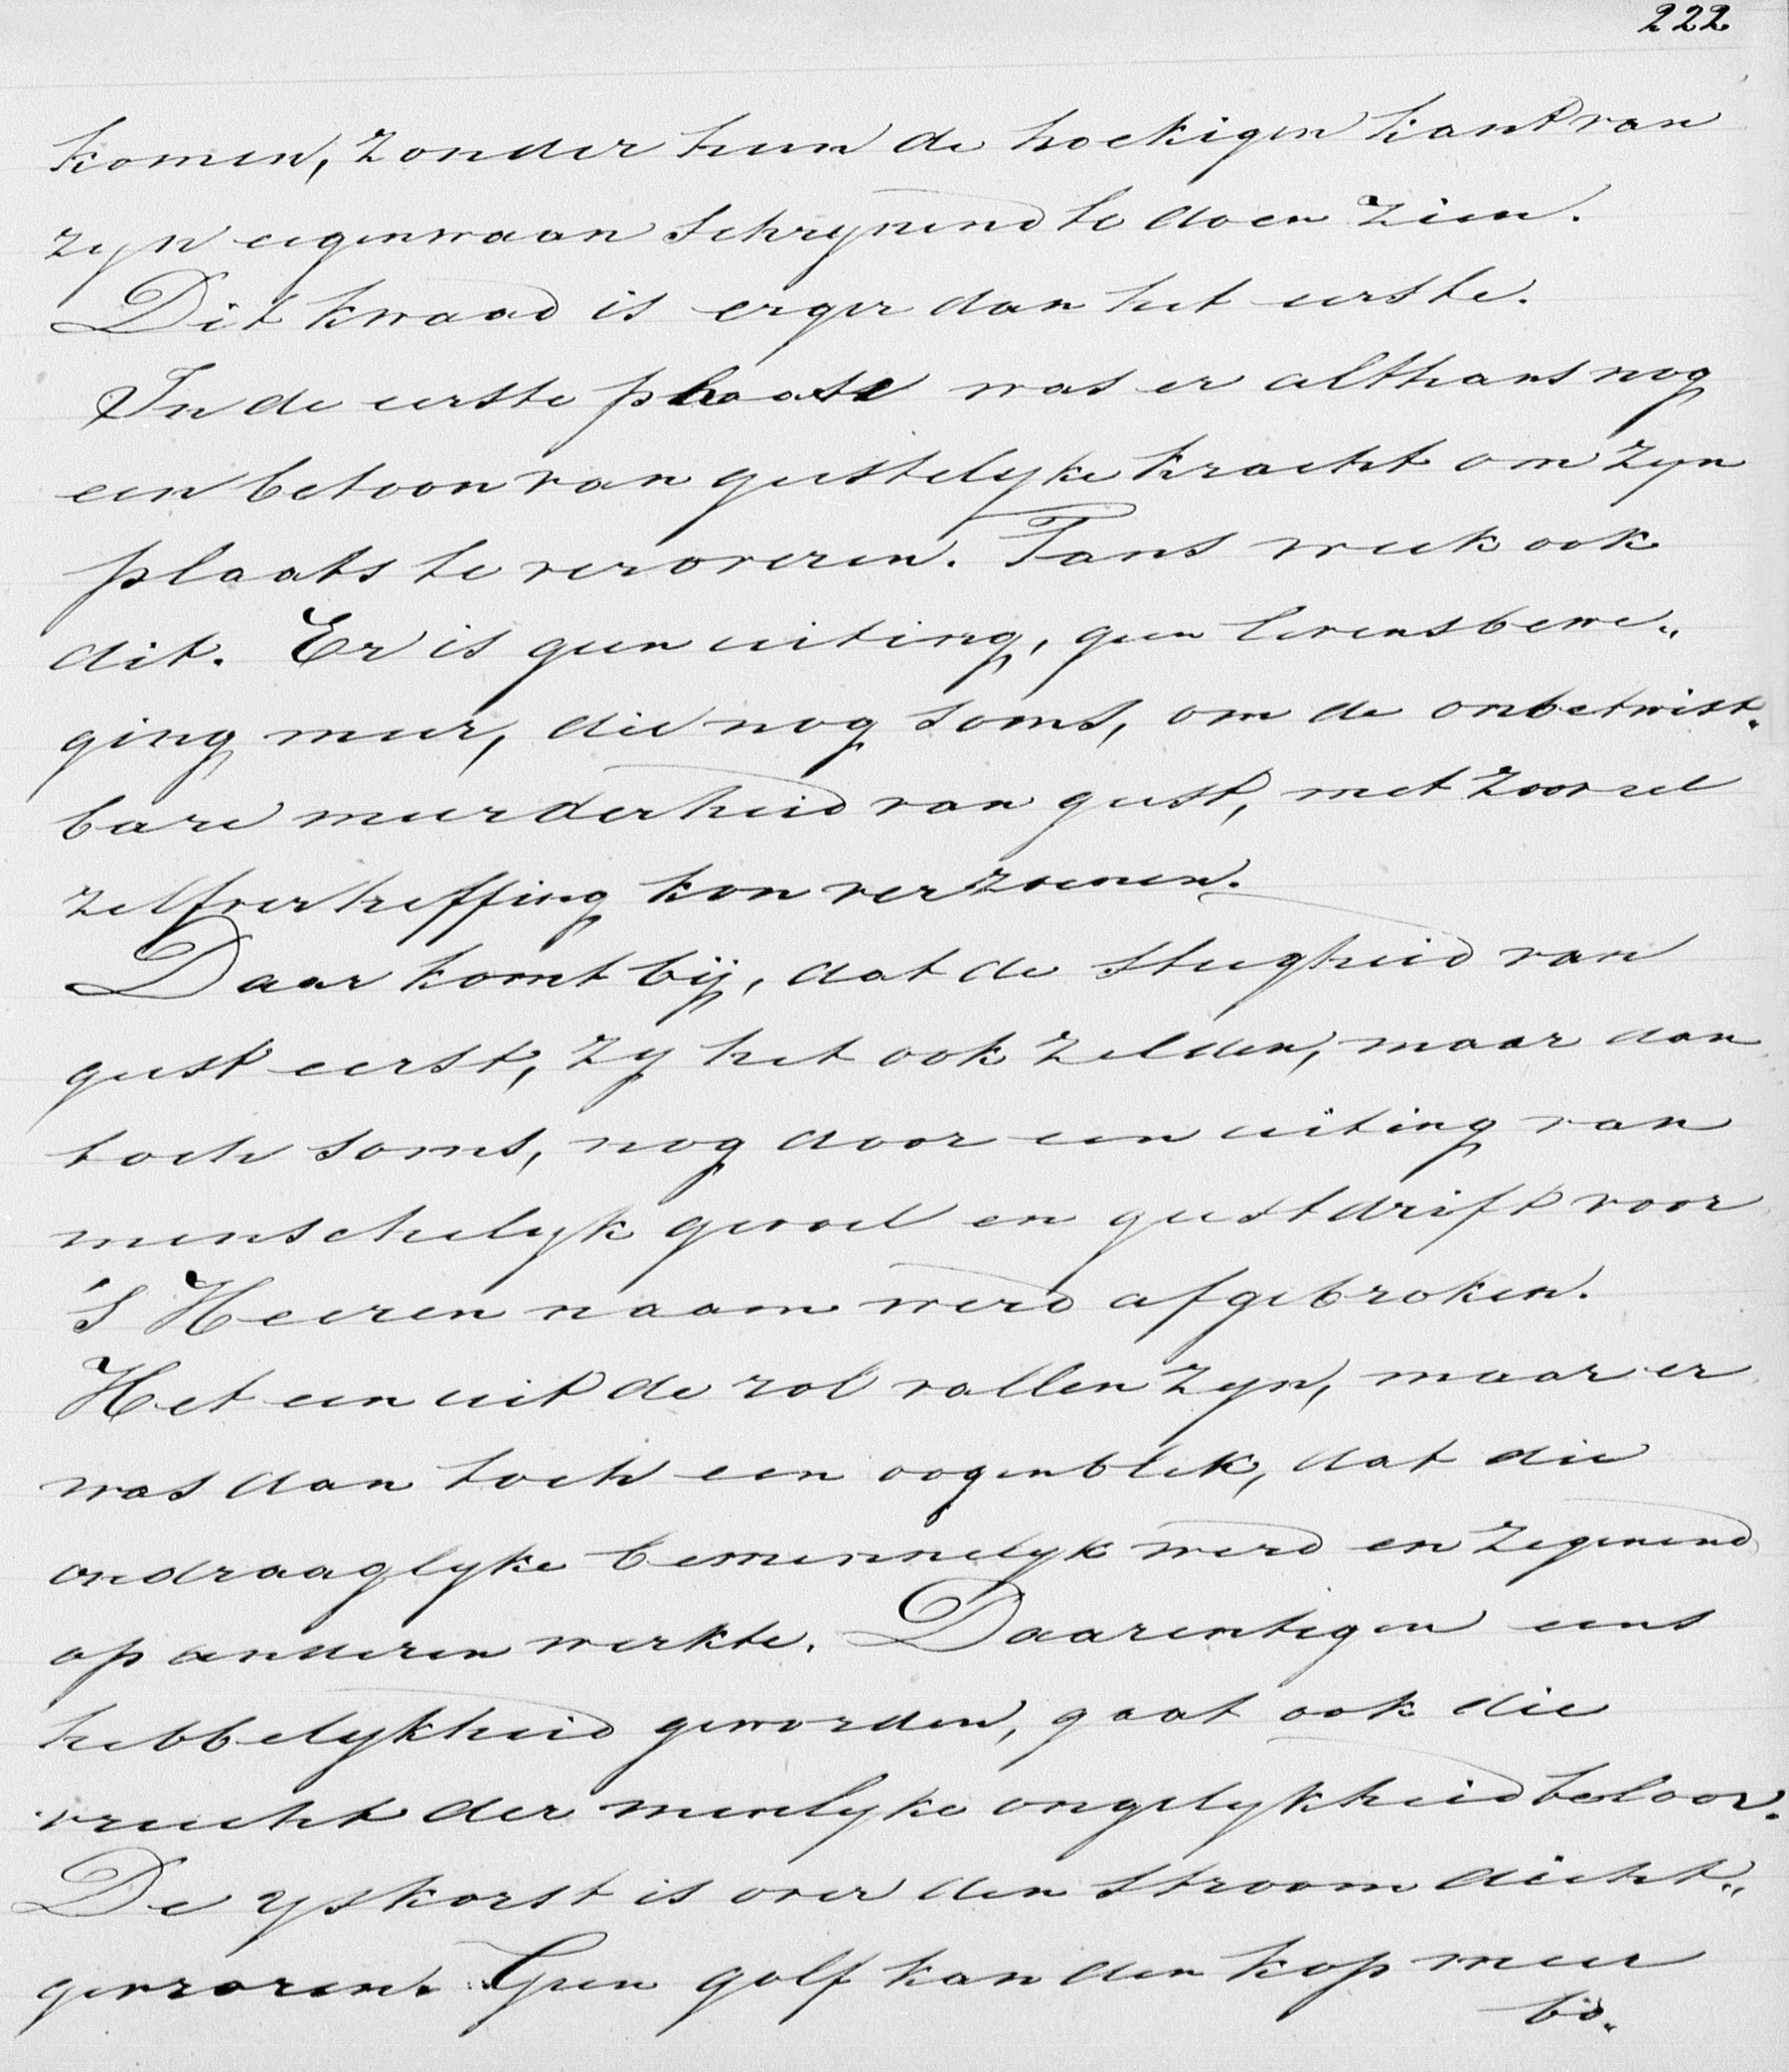 222
komen, zonder hun de hoekigen kant van
zyn eigenwaan schrynend te doen zien.
Dit kwaad is erger dan het eerste.
In de eerste plaats was er althans nog
een betoon van geestelyke kracht om zyn
plaats te veroveren. Tans week ook
dit. Er is geen uiting, geen levensbewe„
ging meer, die nog soms, om de onbetwist„
bare meerderheid van geest, met zooveel
zelfverheffing kon verzoenen.
Daar komt bij, dat de stugheid van
geest eerst, zy het ook zelden, maar dan
toch soms, nog door een uiting van
menschelyk gevoel en geestdrift voor
's Heeren naam werd afgebroken.
Het een uit de rol vallen zyn, maar er
was dan toch een oogenblik, dat die
ondraaglyke beminnelyk werd en zegenend
op anderen werkte. Daarentegen eens
hebbelykheid geworden, gaat ook die
vrucht der menlyke ongelykheid teloor.
De yskorst is over den stroom dicht„
gevroren. Geen golf kan den kop meer
bo„